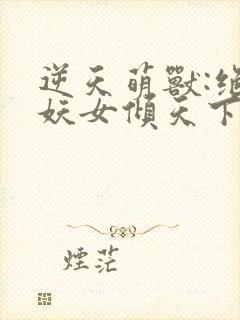 逆天萌獸:絕
妖女傾天下
煙茫